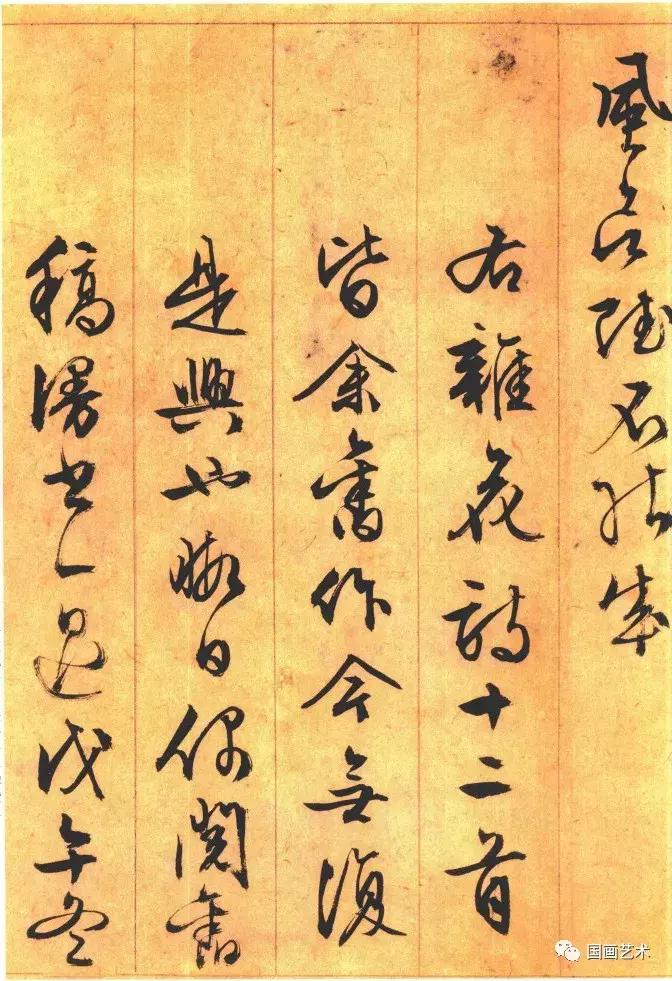 風
右雜花詩十二首
皆余舊作今無復
是興也暇日偶閱舊
稿漫書一過戊午冬
国画艺术